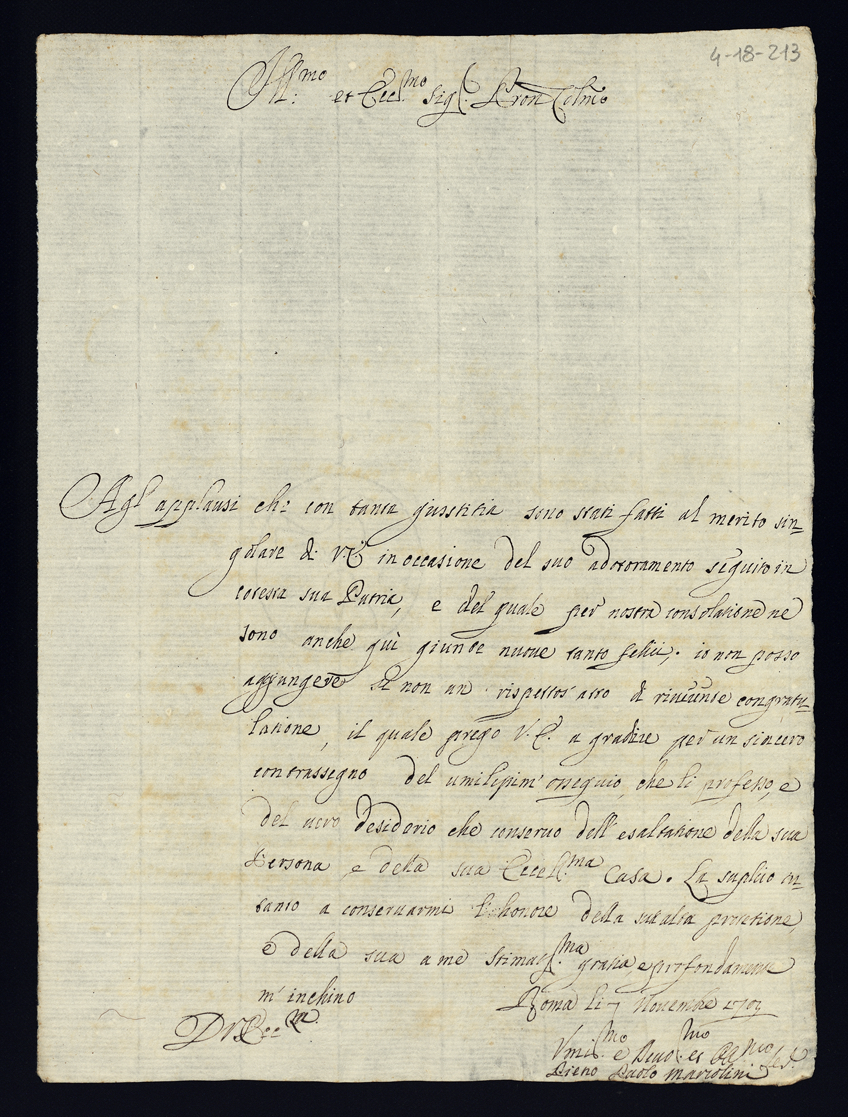 4-18-213
Ill.mo et Ecc.mo Sig.r Pron Colmo
Agl'applausi che con tanta giustitia sono stati fatti al merito sin-
golare di V.E. in occasione del suo adottoramento seguito in
cotesta sua Patria, e del quale per nostra consolatione ne
sono anche quì giunte nuove tanto felici, io non posso
aggiungere se non un rispettos'atto di riverente congratu-
latione, il quale prego V.E. a gradire per un sincero
contrassegno del umilissim' ossequio, che li professo, e
del vero desiderio che conservo dell'esaltatione della sua
Persona e della sua Eccel.ma Casa. La suplico in-
tanto a conservarmi l'honore della sua alta protetione,
e della sua a me stimass.ma gratia e profondamente
m'inchino Roma li 7 Novembre
D V. Ecc.za
Vmi.mo e Devo.mo et
Paolo